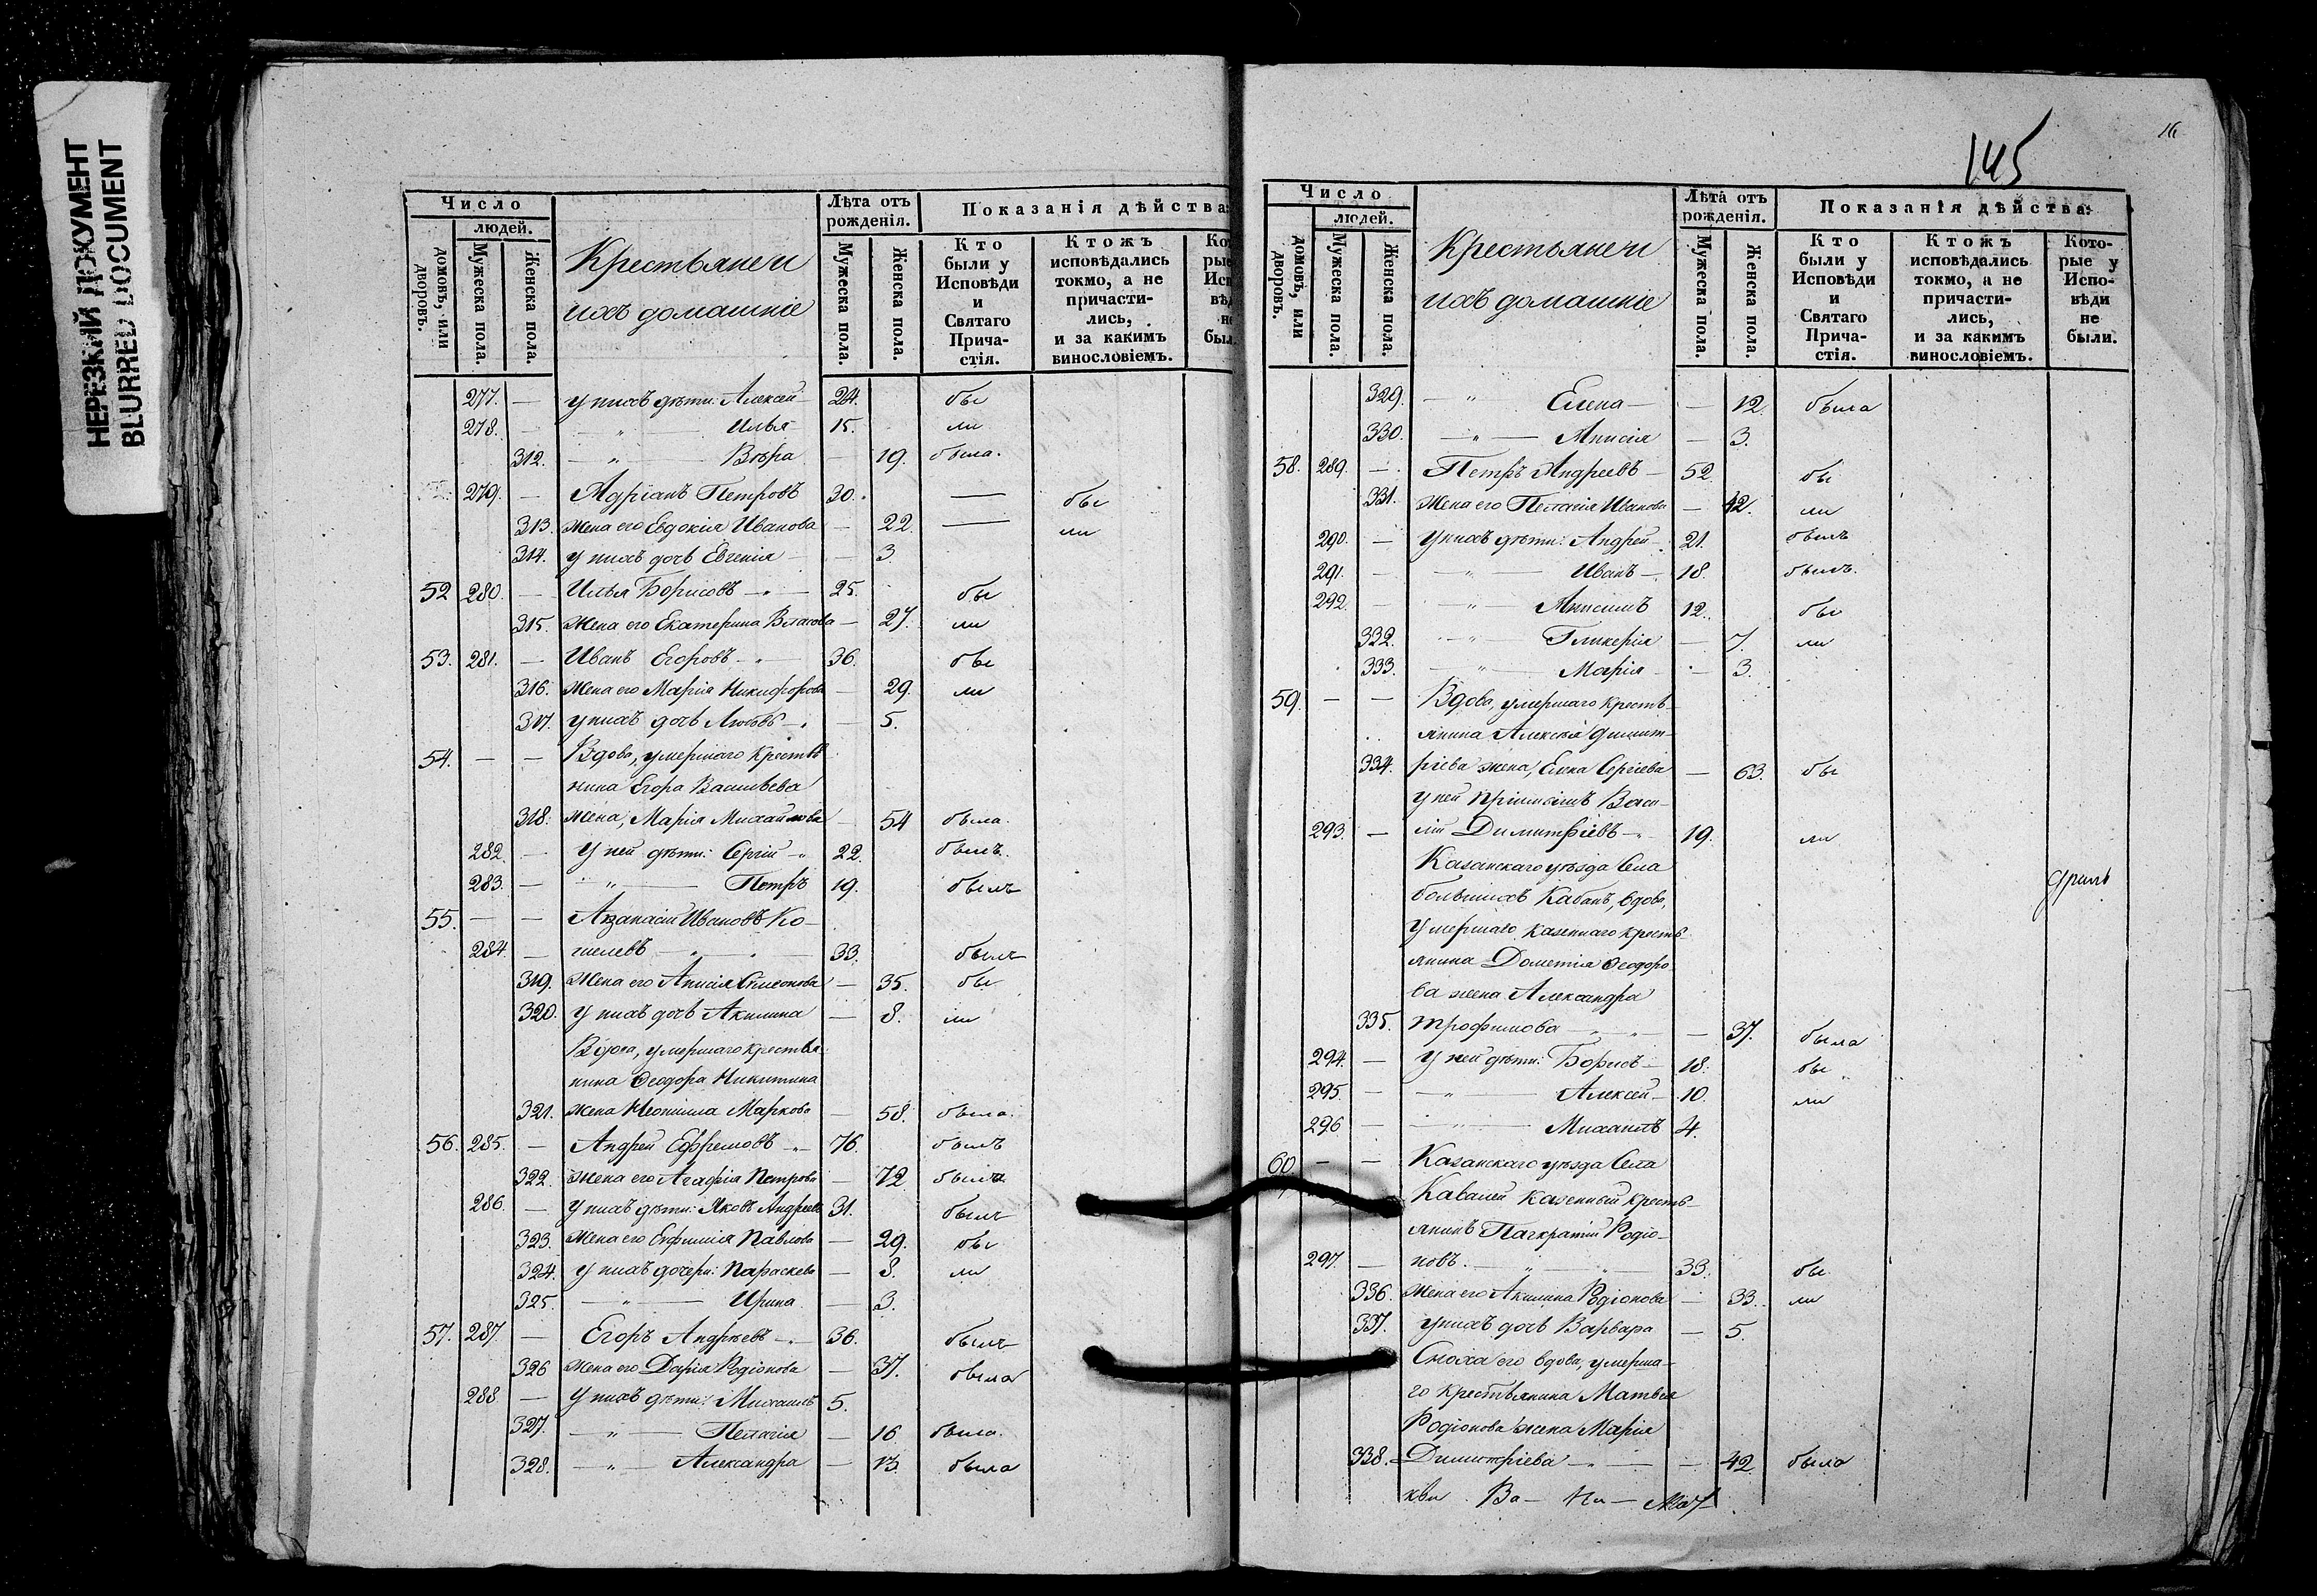 НЕРЕЗКИЙ ДОКУМЕНТ
BLURRED DOCUMENT
Число
людей.
домовъ, или дворовъ.
Мужеска пола.
Женска пола.
Крестьяне и
ихъ домашніе
Лѣта отъ
рожденія.
Мужеска пола.
Женска пола.
Показанія дѣйства:
Кто
были у
Исповѣди
и
Святаго
Прича-
стія.
Ктожъ
исповѣдались
токмо, а не
причасти-
лись,
и за какимъ
винословіемъ.
277. — у нихъ дѣти: Алексей 24. бы
278. — — „ — Илья 15. ли
312. — „ — Вѣра — 19. была.
279. — Адріанъ Петровъ 30. — бы
313. жена его Евдокія Иванова — 22. — ли
314. у нихъ дочь Евгенія — 3.
52 280. — Илья Борисовъ — „ — 25. бы
315. жена его Екатерина Власова — 27. ли
53. 281. — Иванъ Егоровъ — „ — 36. бы
316. жена его Марія Никифорова — 29. ли
317. у нихъ дочь Любовь — 5.
54. — — Вдова, умершаго крестья
нина Егора Васильева
318. жена, Марія Михайлова — 54 была.
282. — У ней дѣти: Сергій — „ 22. былъ.
283. — — „ — Петръ 19. былъ
55. — — Аѳанасій Ивановъ Ко-
284. — шелевъ — „ — 33. былъ
319. Жена его Анисія Симеонова — 35. бы
320. у нихъ дочь Акилина — 8. ли
Вдова, умершаго крестья
нина Ѳеодора Никитина
321. жена Неонилла Маркова — 58. была.
56. 285. — Андрей Ефремовъ — „ — 76. былъ
322. жена его Агафія Петрова — 72. была
286. — У нихъ дѣти: Яковъ Андреевъ 31. былъ
323. Жена его Евфимія Павлова — 29. бы
324. у нихъ дочери: Параскева — 8. ли
325. — „ — Ирина — 3.
57. 287. — Егоръ Андреевъ — „ — 36. былъ
326 жена его Дарія Родіонова — 37. была
288 — У нихъ дѣти: Михаилъ 5.
327. — „ — Пелагія — 16 была.
328. — „ — Александра — 13. была
145
16
Число
людей.
домовъ, или дворовъ.
Мужеска пола.
Женска пола.
Крестьяне и
ихъ домашніе
Лѣта отъ
рожденія.
Мужеска пола.
Женска пола.
Показанія дѣйства:
Кто
были у
Исповѣди
и
Святаго
Прича-
стія.
Ктожъ
исповѣдались
токмо, а не
причасти-
лись,
и за какимъ
винословіемъ.
Кото-
рые у
Испо-
вѣди
не
были.
329. — „ Елена — — 12. была
330. — „ — Анисія — 3.
58. 289. — Петръ Андреевъ — 52. бы
331. Жена его Пелагія Иванова — 42. ли
290. — У нихъ дѣти: Андрей — 21. былъ
291. — — „ — Иванъ — 18. былъ.
292. — — „ — Анисимъ 12. бы
332. — „ — Гликерія — 7. ли
333. — „ — Марія — 3.
59. — — Вдова, умершаго кресть-
янина Алексѣя Димит-
334. ріева жена, Елена Сергіева — 63. бы
у ней пріимышъ Васи-
293. — лій Димитріевъ — „ 19. ли
Казанскаго уѣзда Села
большихъ Кабанъ, вдова,
умершаго казеннаго кресть-
янина Дометія Ѳеодоро
ва жена Александра
335. Трофимова — „ — „ — 37. была
294. — У ней дѣти: Борисъ — 18. бы
295. — — „ — Алексей — 10. ли
296 — — „ — Михаилъ 4.
60 — — Казанскаго уѣзда Села
Кавалей казенный кресть-
янинъ Панкратій Родіо-
297. — новъ. — „ — „ — 33. бы
336. Жена его Акилина Родіонова — 33. ли
337. у нихъ дочь Варвара — 5.
Сноха его вдова, умерша-
го крестьянина Матвея
Родіонова жена Марія
338. Димитріева — „ — — 42. была